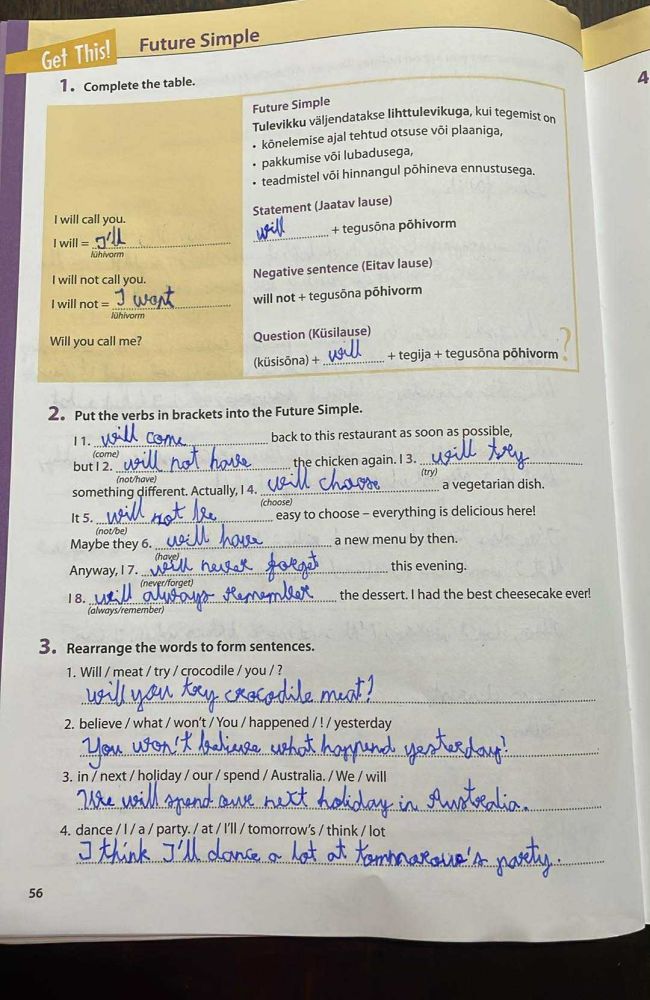 Get This! Future Simple
1. Complete the table.
4
Future Simple
Tulevikku väljendatakse lihttulevikuga, kui tegemist on
• kõnelemise ajal tehtud otsuse või plaaniga,
• pakkumise või lubadusega,
• teadmistel või hinnangul põhineva ennustusega.
I will call you.
I will = I'll
lühivorm
Statement (Jaatav lause)
will + tegusõna põhivorm
I will not call you.
I will not = I wont
lühivorm
Negative sentence (Eitav lause)
will not + tegusõna põhivorm
Will you call me?
Question (Küsilause)
(küsisõna) + will + tegija + tegusõna põhivorm ?
2. Put the verbs in brackets into the Future Simple.
I 1. will come back to this restaurant as soon as possible,
(come)
but I 2. will not have the chicken again. I 3. will try
(not/have) (try)
something different. Actually, I 4. will choose a vegetarian dish.
(choose)
It 5. will not be easy to choose – everything is delicious here!
(not/be)
Maybe they 6. will have a new menu by then.
(have)
Anyway, I 7. will never forget this evening.
(never/forget)
I 8. will always remember the dessert. I had the best cheesecake ever!
(always/remember)
3. Rearrange the words to form sentences.
1. Will / meat / try / crocodile / you / ?
will you try crocodile meat?
2. believe / what / won't / You / happened / ! / yesterday
You won't believe what happend yesterday!
3. in / next / holiday / our / spend / Australia. / We / will
We will spend our next holiday in Australia.
4. dance / I / a / party. / at / I'll / tomorrow's / think / lot
I think I'll dance a lot at party.
56